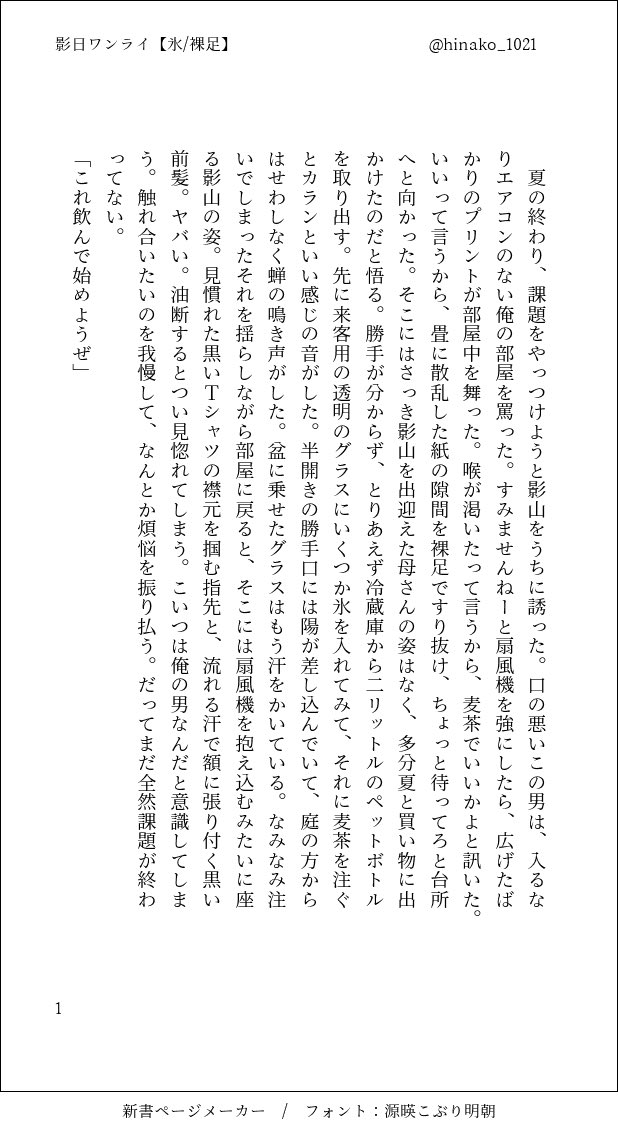 影日ワンライ【氷/裸足】
@hinako_1021
　夏の終わり、課題をやっつけようと影山をうちに誘った。口の悪いこの男は、入るな
りエアコンのない俺の部屋を罵った。すみませんねーと扇風機を強にしたら、広げたば
かりのプリントが部屋中を舞った。喉が渇いたって言うから、麦茶でいいかよと訊いた。
いいって言うから、畳に散乱した紙の隙間を裸足ですり抜け、ちょっと待ってろと台所
へと向かった。そこにはさっき影山を出迎えた母さんの姿はなく、多分夏と買い物に出
かけたのだと悟る。勝手が分からず、とりあえず冷蔵庫から二リットルのペットボトル
を取り出す。先に来客用の透明のグラスにいくつか氷を入れてみて、それに麦茶を注ぐ
とカランといい感じの音がした。半開きの勝手口には陽が差し込んでいて、庭の方から
はせわしなく蝉の鳴き声がした。盆に乗せたグラスはもう汗をかいている。なみなみ注
いでしまったそれを揺らしながら部屋に戻ると、そこには扇風機を抱え込むみたいに座
る影山の姿。見慣れた黒いTシャツの襟元を掴む指先と、流れる汗で額に張り付く黒い
前髪。ヤバい。油断するとつい見惚れてしまう。こいつは俺の男なんだと意識してしま
う。触れ合いたいのを我慢して、なんとか煩悩を振り払う。だってまだ全然課題が終わ
ってない。
「これ飲んで始めようぜ」
1
新書ページメーカー　/　フォント：源暎こぶり明朝